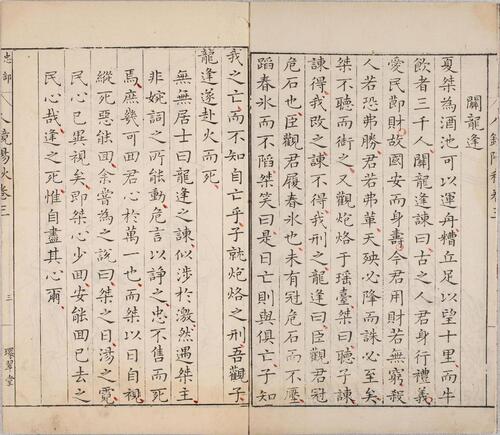 關龍逢
夏桀為酒池可以運舟糟丘足以望十里而牛
飲者三千人關龍逢諫曰古之人君身行禮義
愛民節財故國安而身壽今君用財若無窮殺
人若恐弗勝君若弗革天殃必降而誅必至矣
桀不聽而銜之又觀炮烙于瑤臺桀曰聽子諫
諫得我改之諫不得我刑之龍逢曰臣觀君冠
危石也臣觀君履春氷也未有冠危石而不壓
蹈春氷而不陷桀笑曰是日亡則與俱亡子知
我之亡而不知自亡乎子就炮烙之刑吾觀子
龍逢遂赴火而死
無無居士曰龍逢之諫似涉於激然遇桀主
非婉詞之所能動危言以諍之忠不售而死
焉庶幾可回君心於萬一也而桀以日自視
縱死惡能回余嘗為之說曰桀之日湯之霓
民心已異視矣即桀心少回安能回已去之
民心哉逢之死惟自盡其心爾
忠部 人鏡陽秋卷三 三 環翠堂